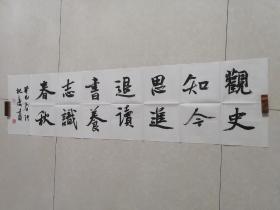 觀史
知今
思進
退讀
書養
志識
春秋